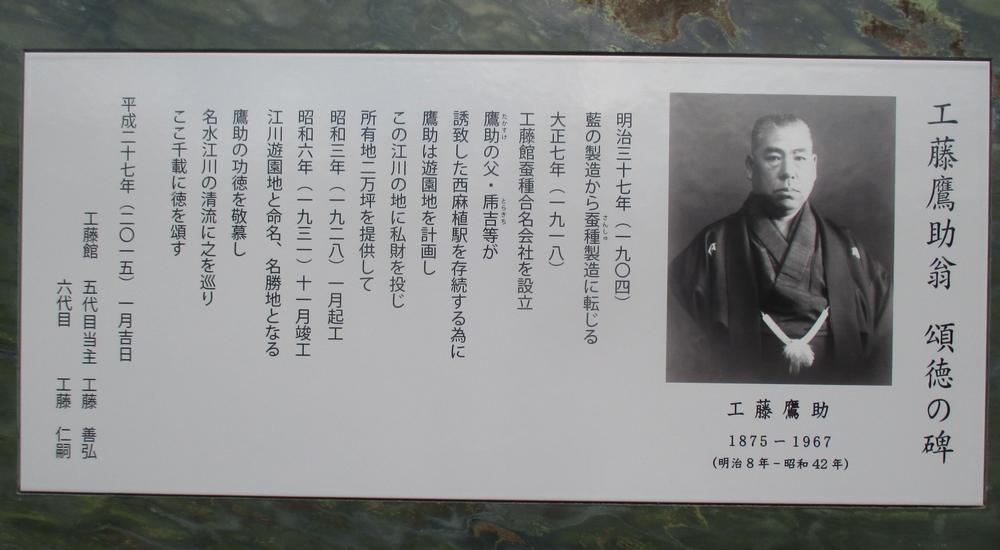 工藤鷹助翁　頌徳の碑
工藤鷹助
1875－1967
(明治8年－昭和42年)
明治三十七年（一九〇四）
藍の製造から蚕種製造に転じる
さんしゅ
大正七年（一九一八）
工藤館蚕種合名会社を設立
鷹助の父・乕吉等が
たかすけ
とらきち
誘致した西麻植駅を存続する為に
鷹助は遊園地を計画し
この江川の地に私財を投じ
所有地二万坪を提供して
昭和三年（一九二八）一月起工
昭和六年（一九三一）十一月竣工
江川遊園地と命名、名勝地となる
鷹助の功徳を敬慕し
名水江川の清流に之を巡り
ここ千載に徳を頌す
平成二十七年（二〇一五）　一月吉日
工藤館　五代目当主　工藤　善弘
六代目　工藤　仁嗣